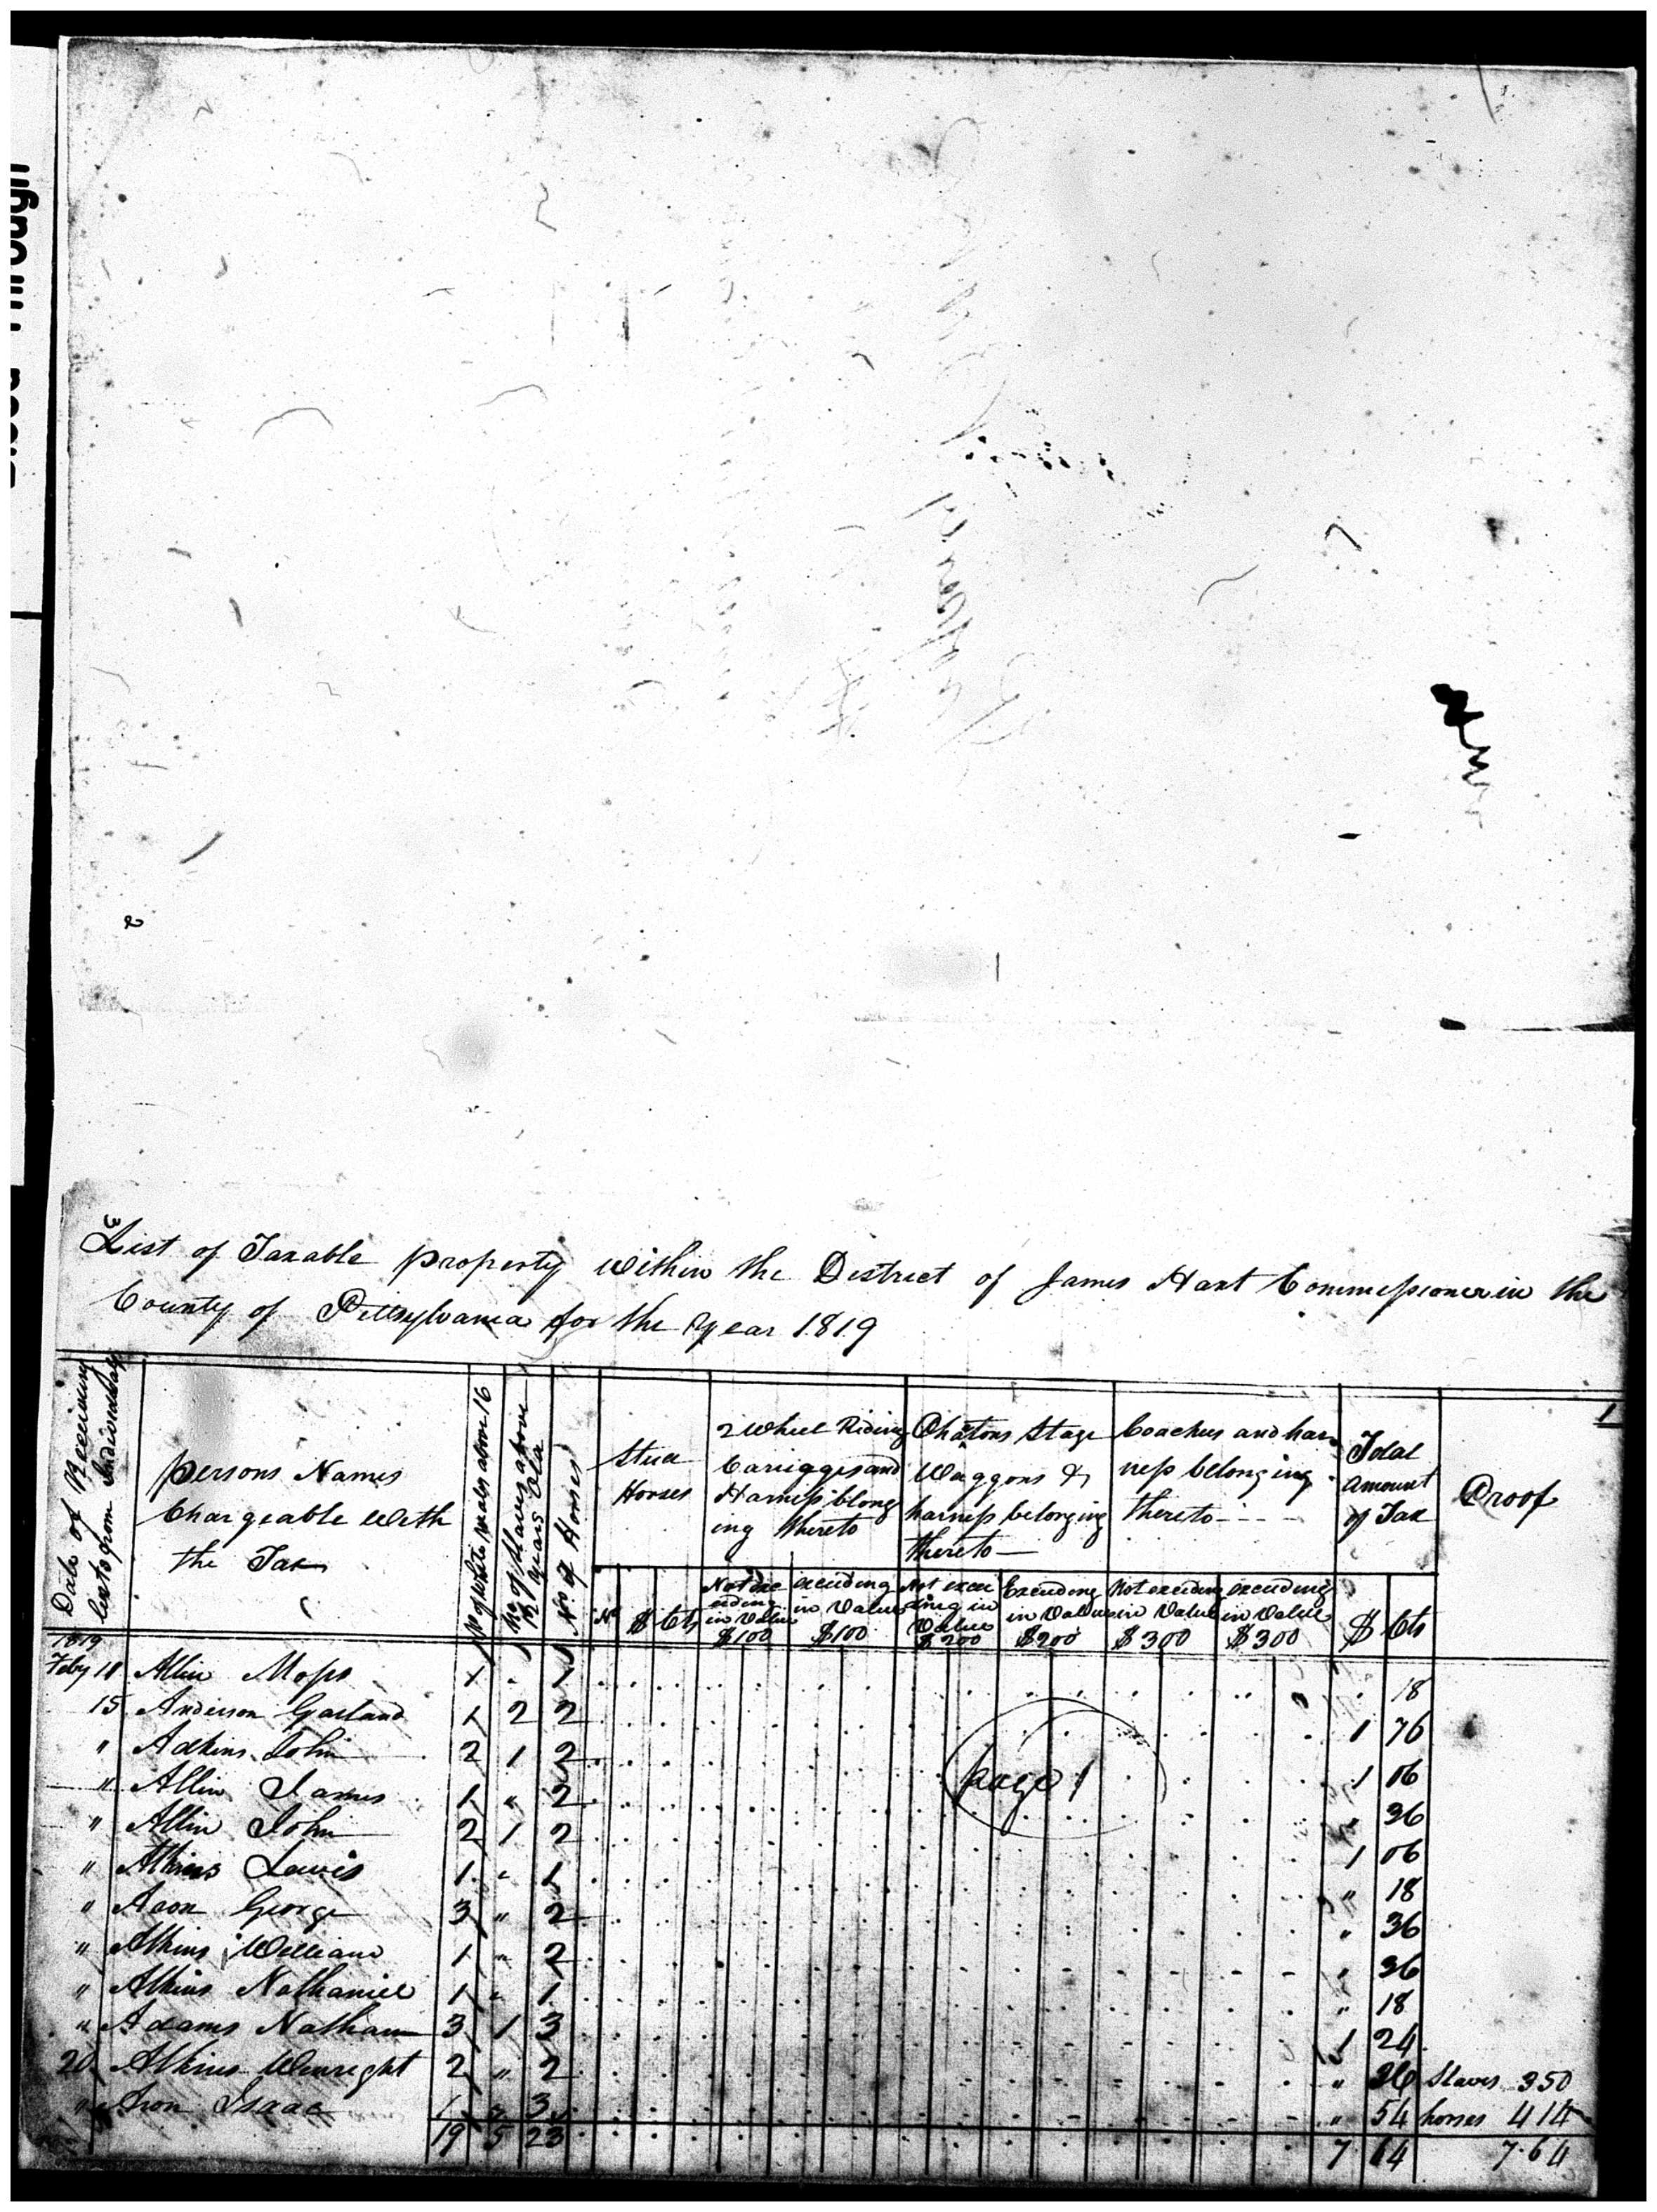 List of Taxable property within the District of James Hart Commissioner in the
County of Pittsylvania for the year 1819
1
Date of Receiving lists from Individuals
persons Names
Chargeable with
the Tax
No of White males above 16
No of slaves above 12 years old
No of Horses
Stud
Horses
2 Wheel Riding
Carriages and
Harness belong
ing thereto
Phatons Stage
Waggons &
harness belonging
thereto
Coaches and har
ness belonging
thereto
Total
amount
of Tax
Proof
No $ Cts
Not exceeding in Value $100
exceeding in Value $100
Not exceeding in Value $200
Exceeding in Value $200
Not exceeding in Value $300
exceeding in Value $300
$ Cts
1819
Feby 11 Allin Moss 1 " 1 18
15 Anderson Garland 1 2 2 1 76
" Adkins John 2 1 2 1 06
" Allin James 1 " 2 " 36
" Allin John 2 1 2 1 06
" Atkins Lewis 1 " 1 " 18
" Aaon George 3 " 2 " 36
" Atkins William 1 " 2 " 36
" Atkins Nathaniel 1 " 1 " 18
" Adams Nathan 3 1 3 1 24
20 Atkins Winright 2 " 2 " 36 Slaves 350
" Aron Isaac 1 " 3 " 54 horses 414
19 5 23 7 64 7.64
page 1